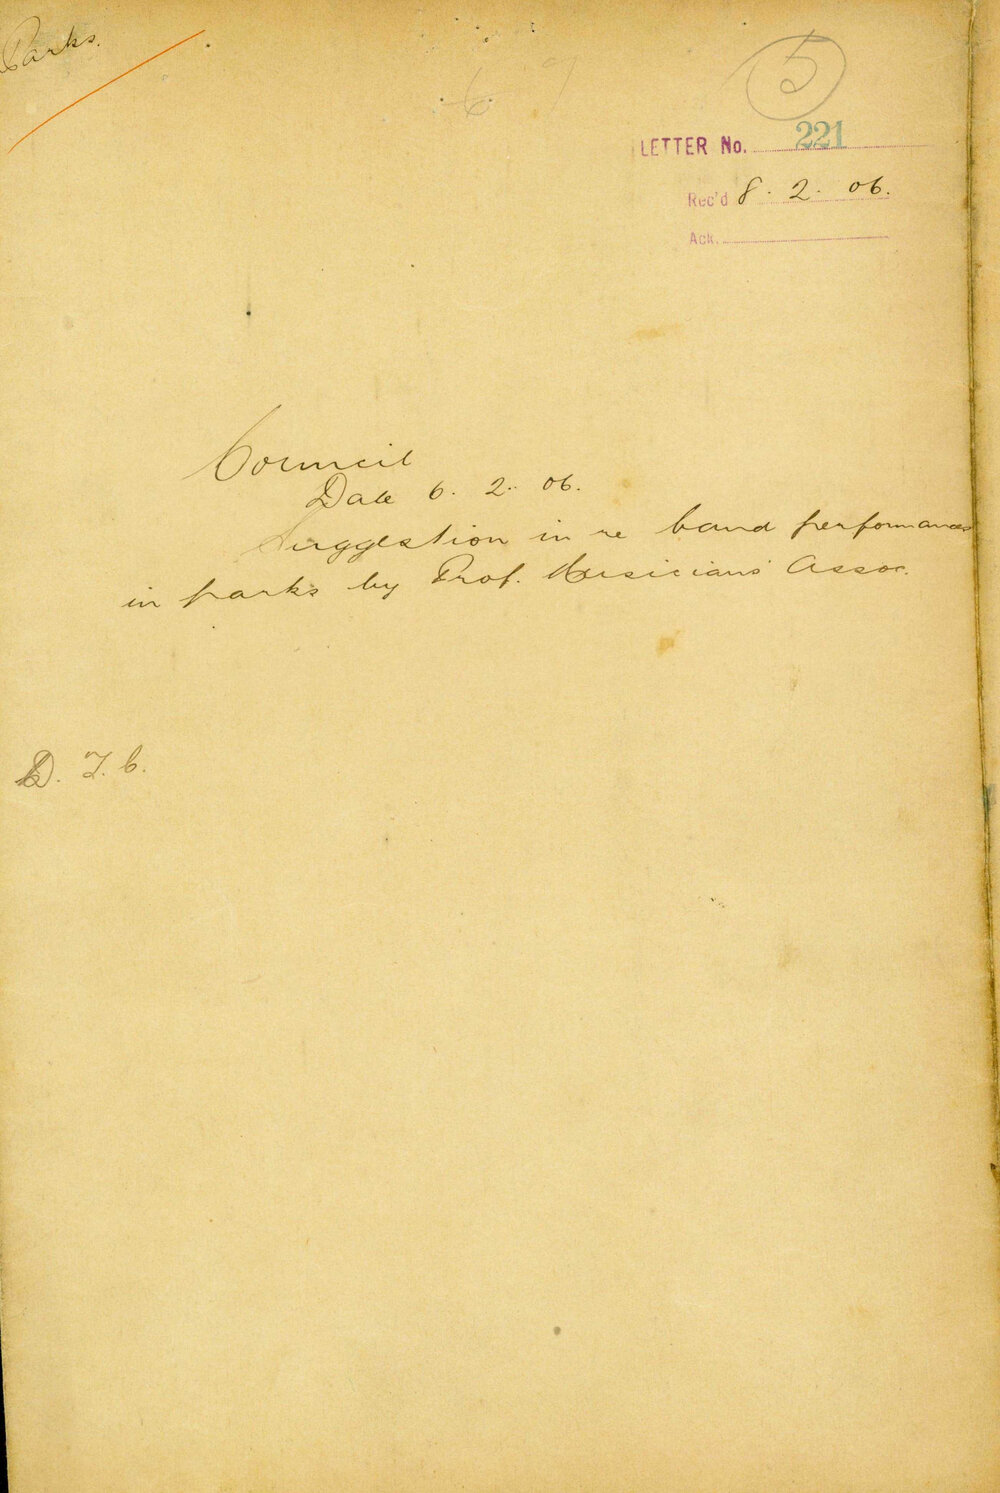 Parks.
5
LETTER No. 221
Rec'd 8. 2. 06.
Ack.
Council
Date 6. 2. 06.
Suggestion in re band performances
in parks by Prof. Musicians' Assoc.
D. T. C.